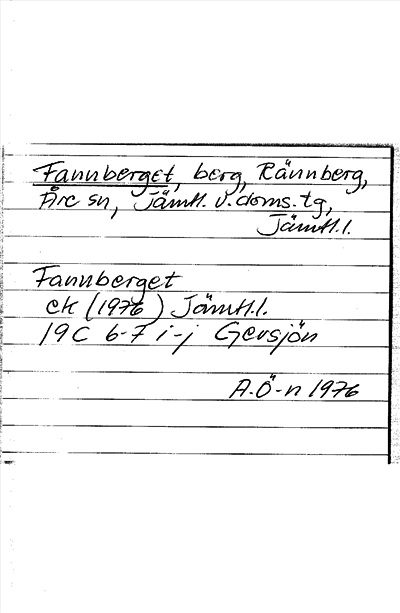 Fannberget, berg, Rännberg,
Åre sn, Jämtl. v. doms. tg,
Jämtl.l.
Fannberget
ek (1976) Jämtl.l.
19C 6-7 i-j Gevsjön
A.Ö-n 1976